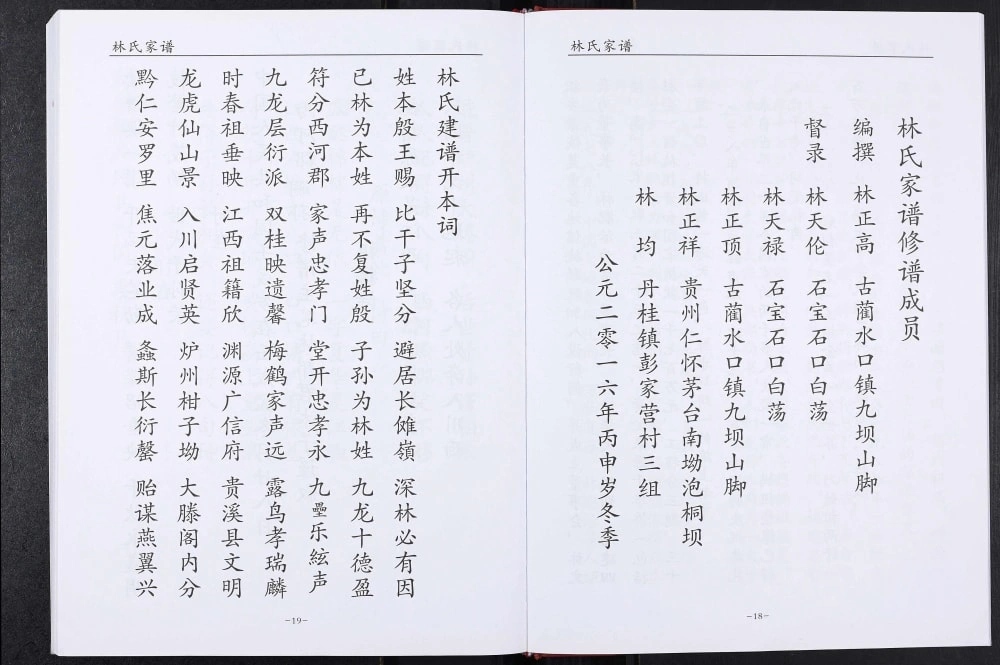 林氏家谱
林氏家谱修谱成员
编撰 林正高 古蔺水口镇九坝山脚
督录 林天伦 石宝石口白荡
林天禄 石宝石口白荡
林正顶 古蔺水口镇九坝山脚
林正祥 贵州仁怀茅台南坳泡桐坝
林 均 丹桂镇彭家营村三组
公元二零一六年丙申岁冬季
-18-
林氏家谱
林氏建谱开本词
姓本殷王赐 比干子坚分 避居长傩嶺 深林必有因
已林为本姓 再不复姓殷 子孙为林姓 九龙十德盈
符分西河郡 家声忠孝门 堂开忠孝永 九壘乐絃声
九龙层衍派 双桂映遗馨 梅鹤家声远 露鸟孝瑞麟
时春祖垂映 江西祖籍欣 渊源广信府 贵溪县文明
龙虎仙山景 入川启贤英 炉州柑子坳 大滕阁内分
黔仁安罗里 焦元落业成 螽斯长衍罄 贻谋燕翼兴
-19-